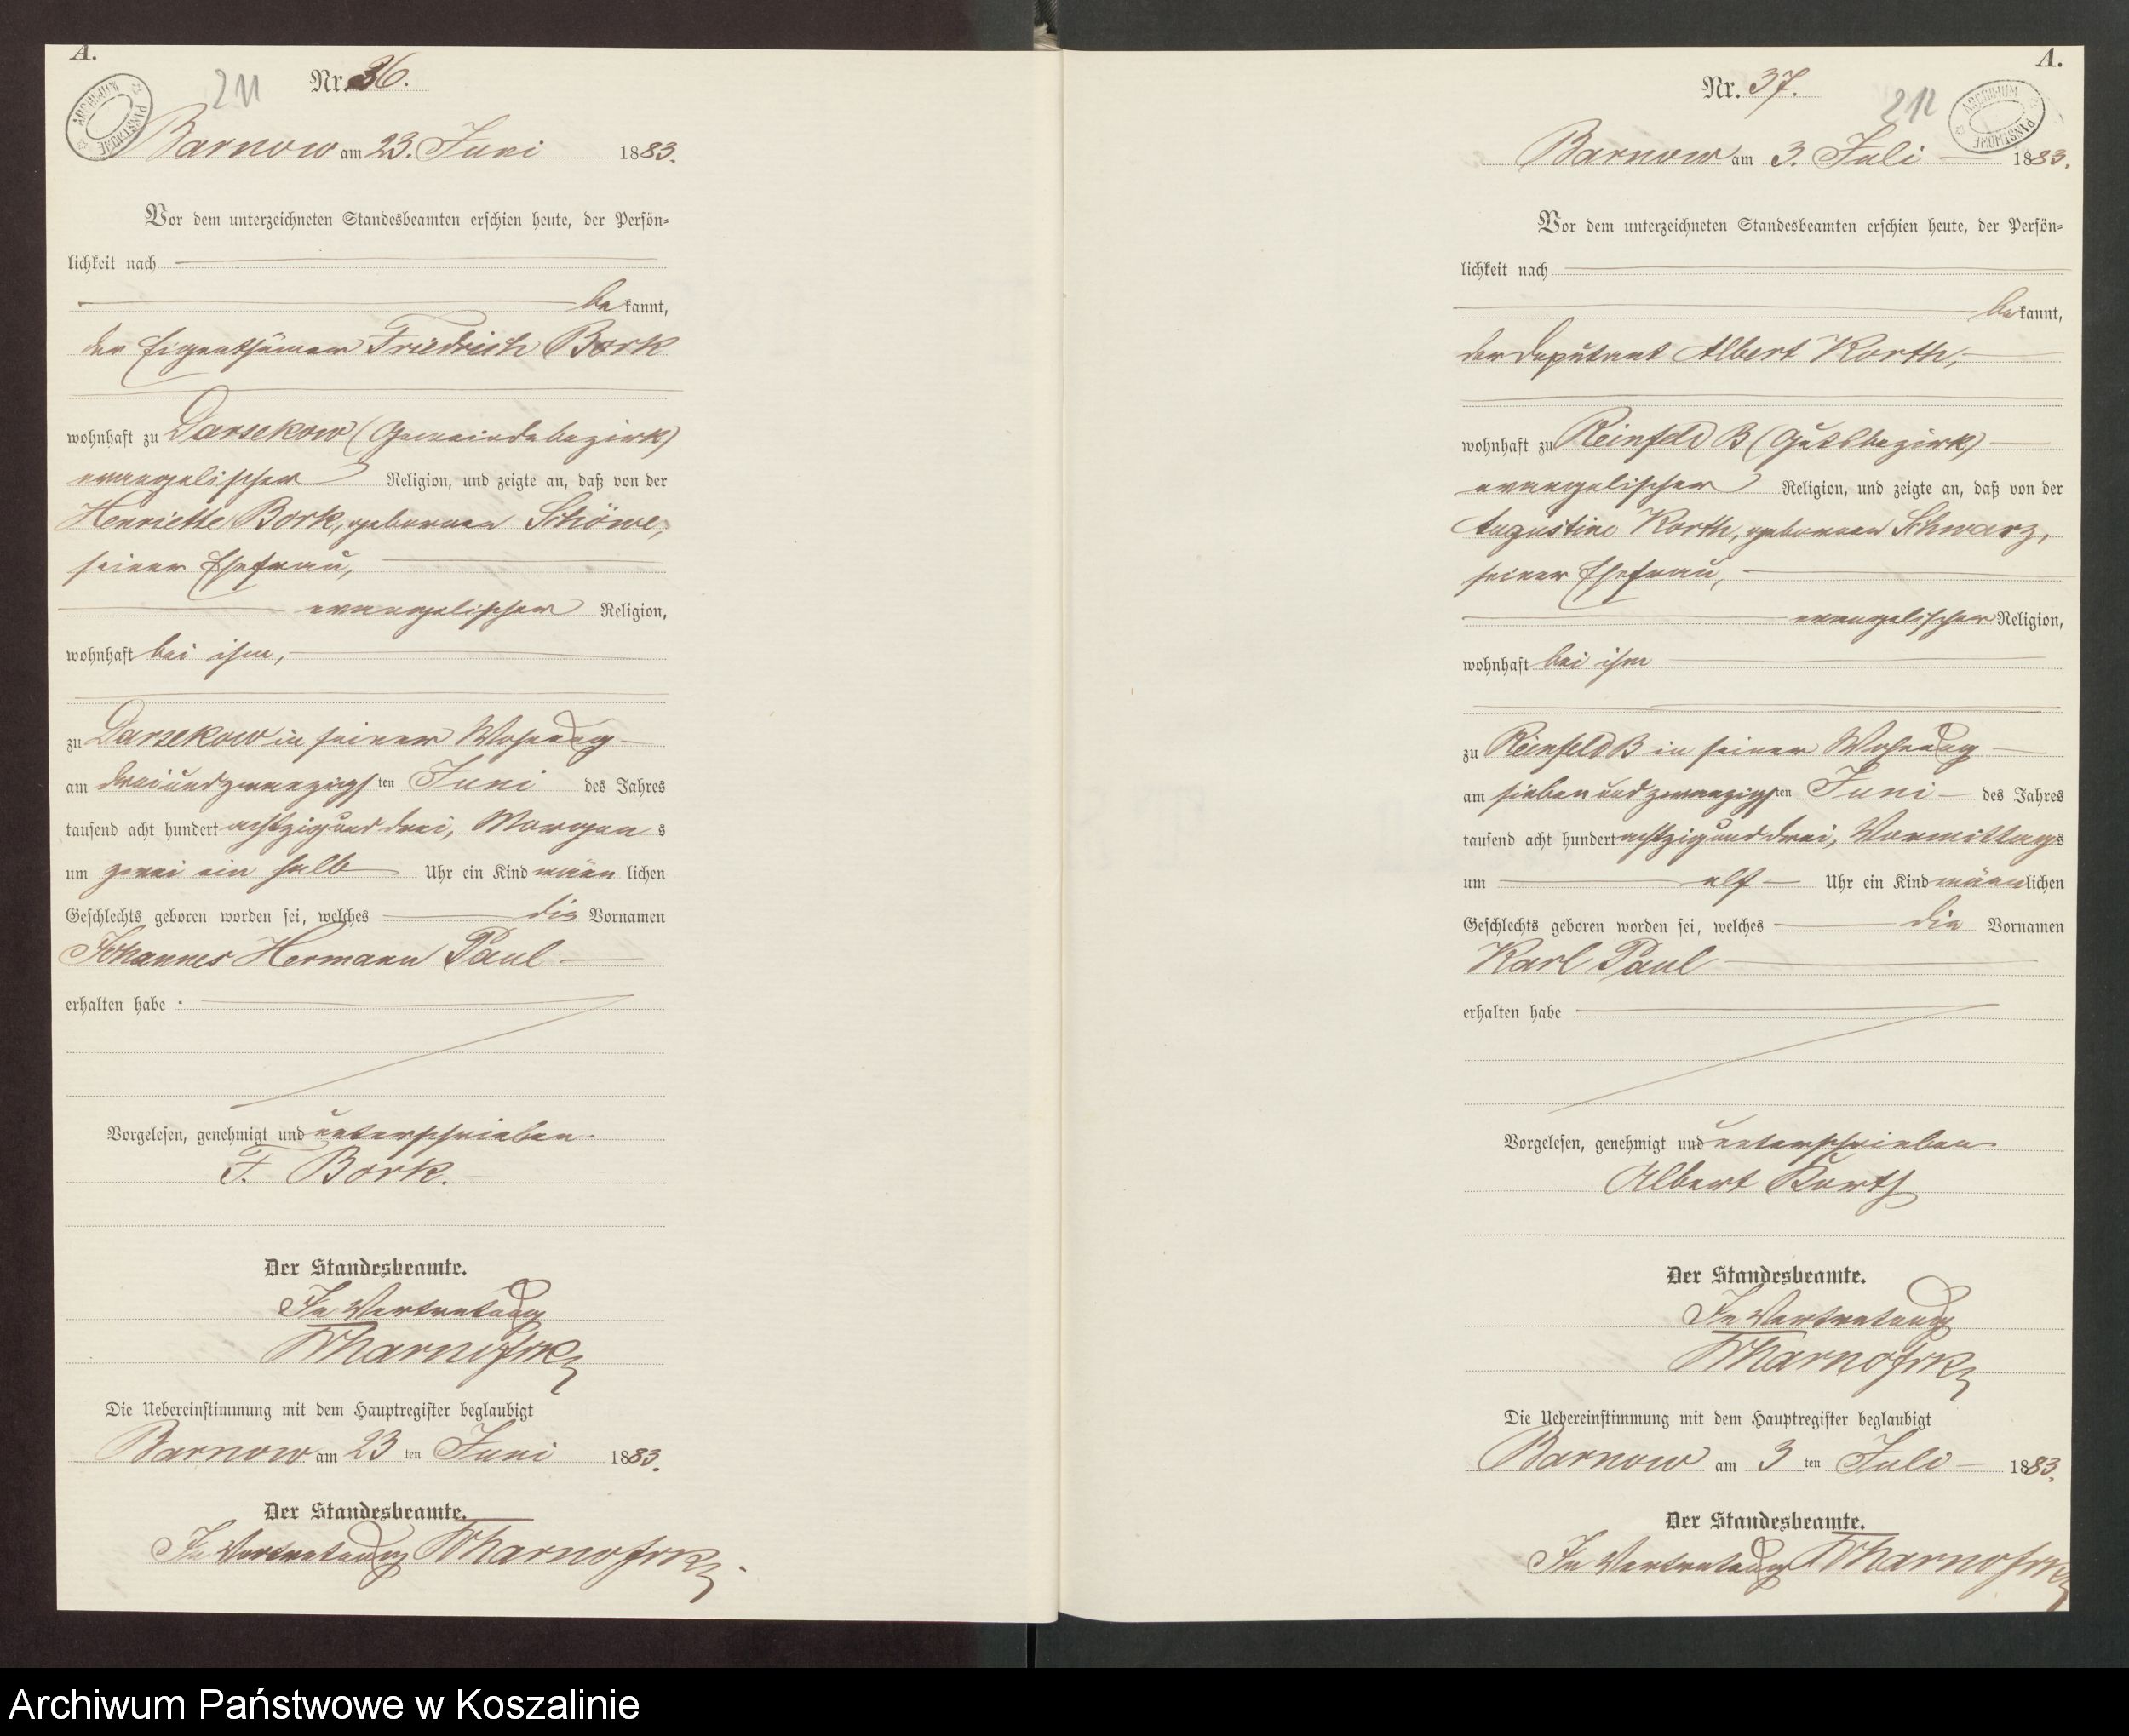 A.
211
Nr. 36.
Barnow am 23. Juni 1883.
Vor dem unterzeichneten Standesbeamten erschien heute, der Persön-
lichkeit nach
bekannt,
der Eigenthümer Friedrich Bork
wohnhaft zu Darsekow (Gemeindebezirk)
evangelischer Religion, und zeigte an, daß von der
Henriette Bork, geborenen Schöwe,
seiner Ehefrau,
evangelischer Religion,
wohnhaft bei ihm,
zu Darsekow in seiner Wohnung
am dreiundzwanzigsten Juni des Jahres
tausend acht hundert achtzig und drei, Morgens
um zwei ein halb Uhr ein Kind männlichen
Geschlechts geboren worden sei, welches die Vornamen
Johannes Hermann Paul
erhalten habe.
Vorgelesen, genehmigt und unterschrieben.
F. Bork.
Der Standesbeamte.
In Vertretung
Die Uebereinstimmung mit dem Hauptregister beglaubigt
Barnow am 23ten Juni 1883.
Der Standesbeamte.
In Vertretung
A.
212
ARCHIWUM PAŃSTWOWE
Nr. 37.
Barnow am 3. Juli 1883.
Vor dem unterzeichneten Standesbeamten erschien heute, der Persön-
lichkeit nach
bekannt,
der Deputant Albert Korth,
wohnhaft zu Reinfeld B (Gutsbezirk)
evangelischer Religion, und zeigte an, daß von der
Augustine Korth, geborenen Schwarz,
seiner Ehefrau,
evangelischer Religion,
wohnhaft bei ihm
zu Reinfeld B in seiner Wohnung
am siebenundzwanzigsten Juni des Jahres
tausend acht hundert achtzig und drei, Vormittags
um elf Uhr ein Kind männlichen
Geschlechts geboren worden sei, welches die Vornamen
Karl Paul
erhalten habe
Vorgelesen, genehmigt und unterschrieben
Albert Korth
Der Standesbeamte.
In Vertretung
Die Uebereinstimmung mit dem Hauptregister beglaubigt
Barnow am 3ten Juli 1883.
Der Standesbeamte.
In Vertretung
Archiwum Państwowe w Koszalinie